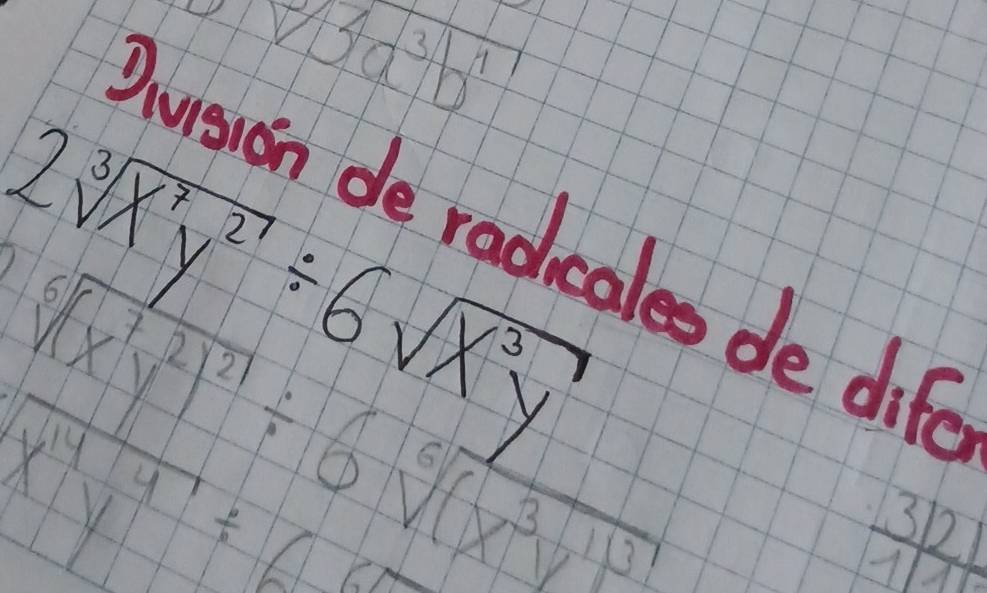 ∛3a³b¹
División de radicales de difer
2∛x⁷y² ÷ 6√x³y
⁶√(x⁷y²)² ÷ 6 ⁶√(x³y¹)³
√x¹⁴y⁴ ÷ 6
3|2
1|1